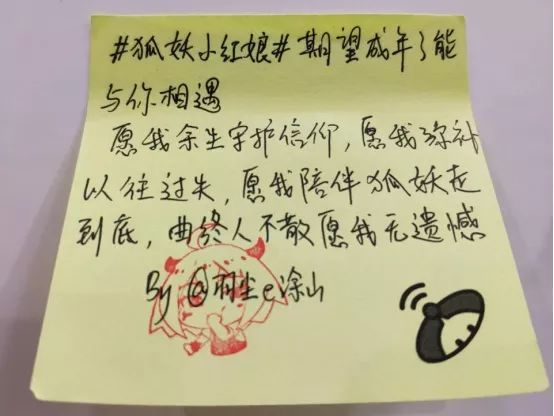 #狐妖小红娘#期望成年了能
与你相遇
愿我余生守护信仰,愿我弥补
以往过失,愿我陪伴狐妖走
到底,曲终人不散愿我无遗憾
By @羽尘e涂山